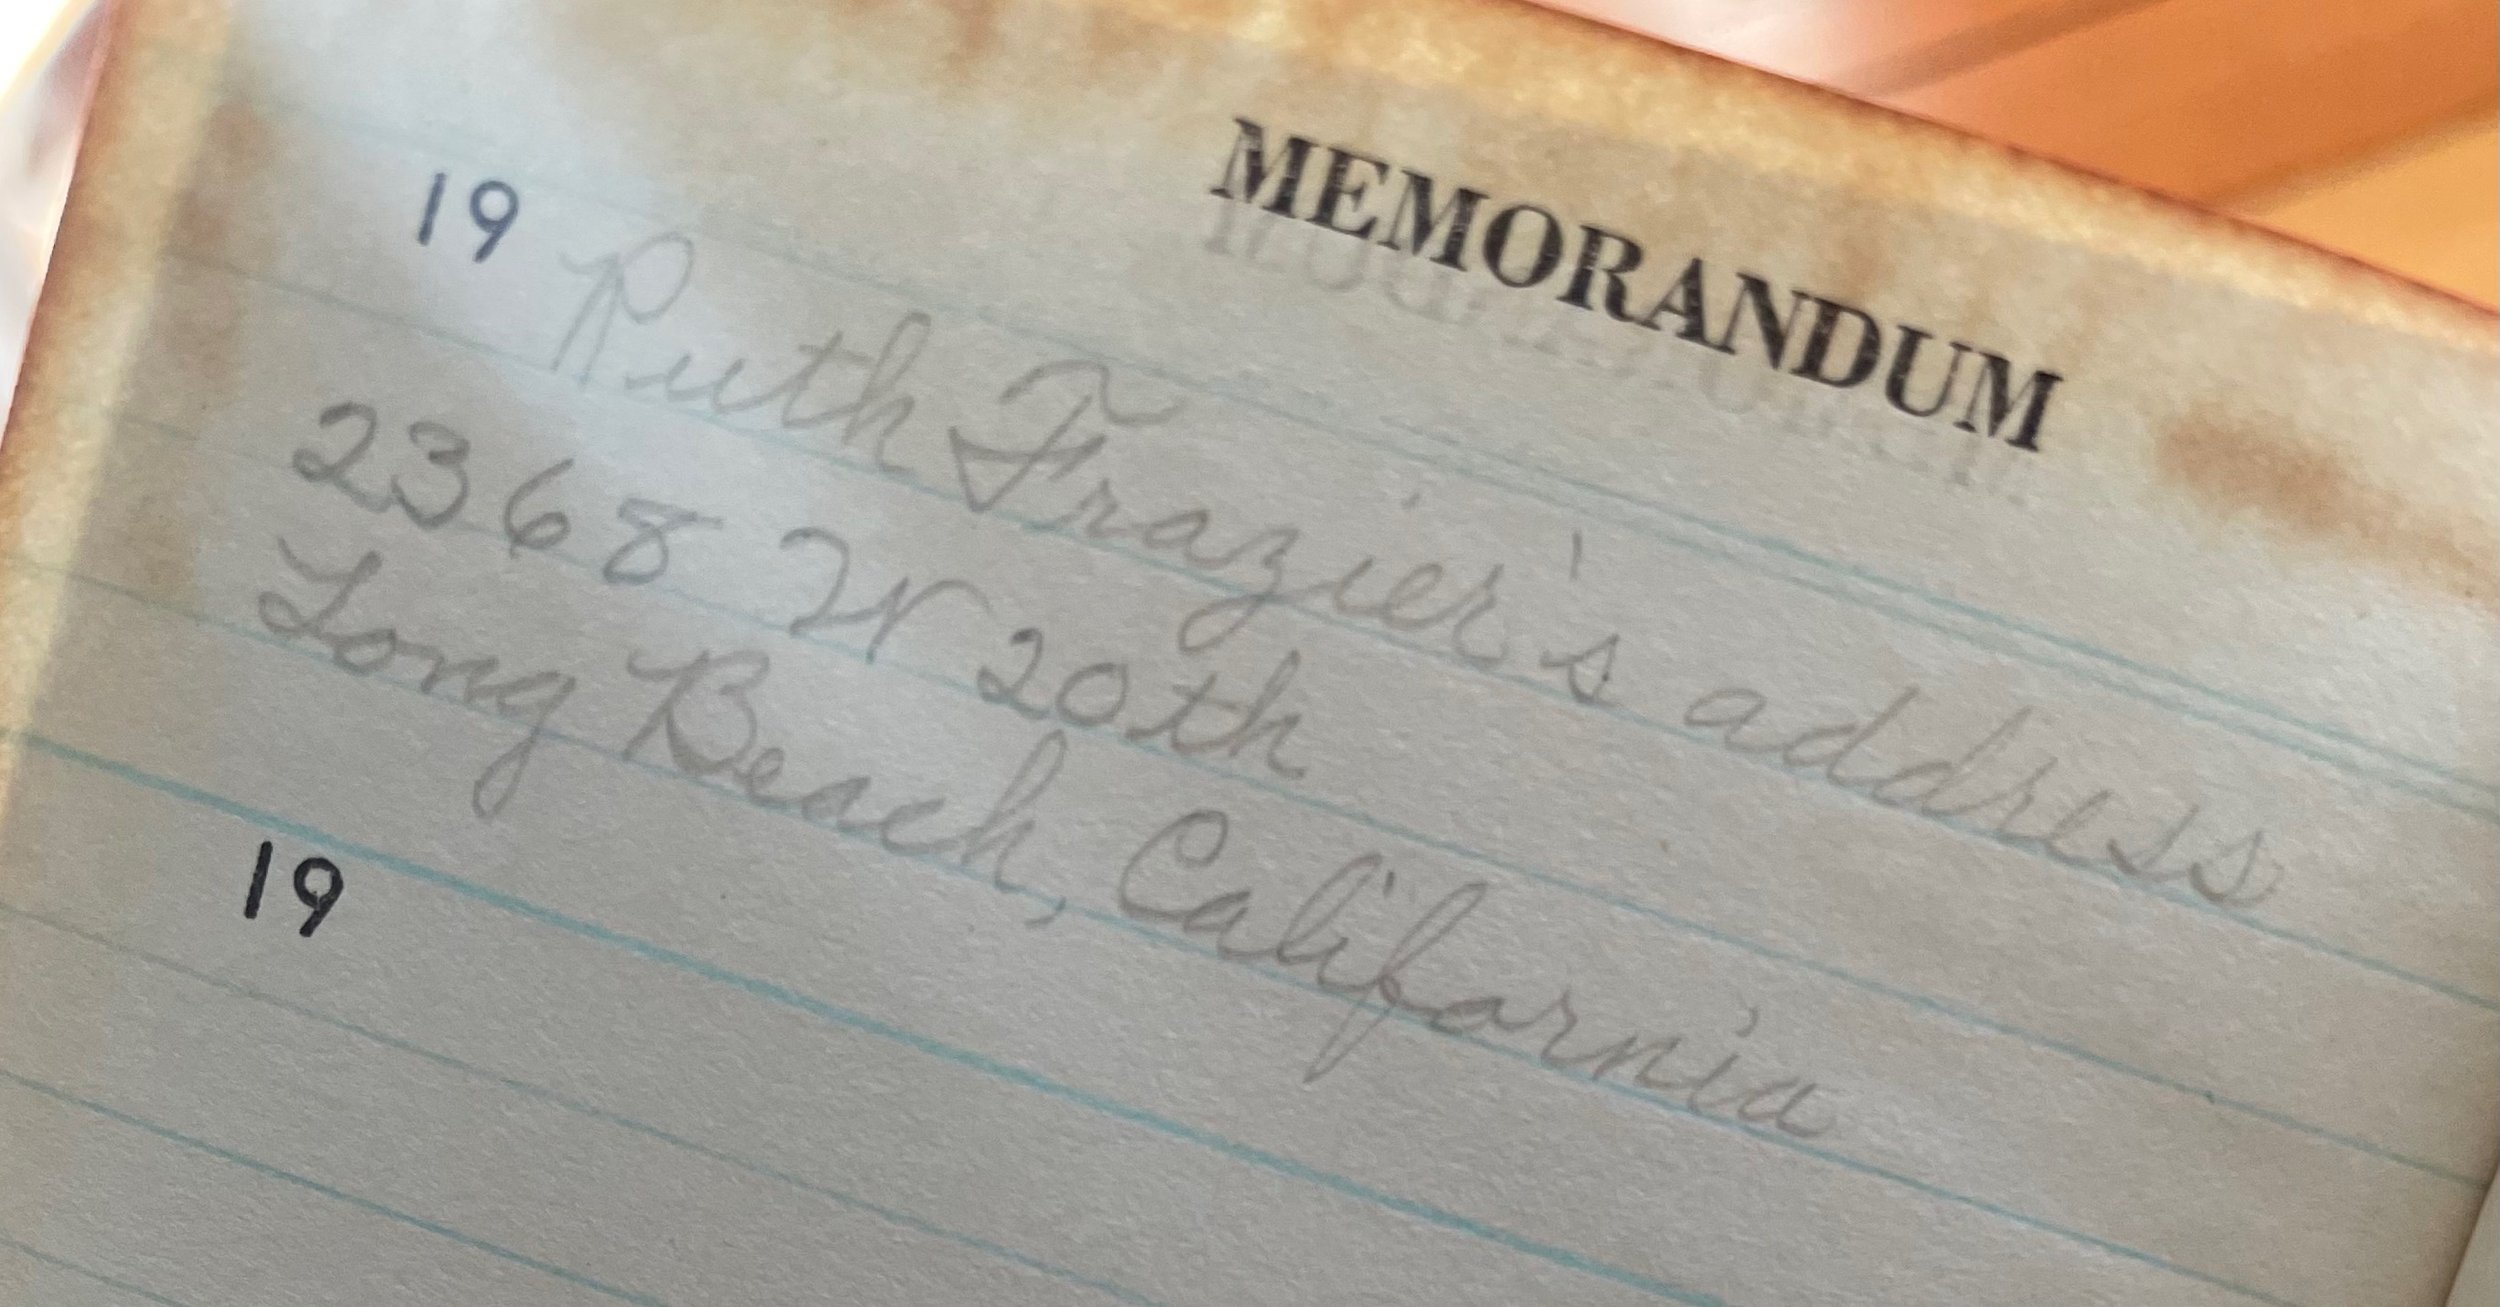 MEMORANDUM
19 Ruth Frazier's address
2368 W 20th
Long Beach, California
19